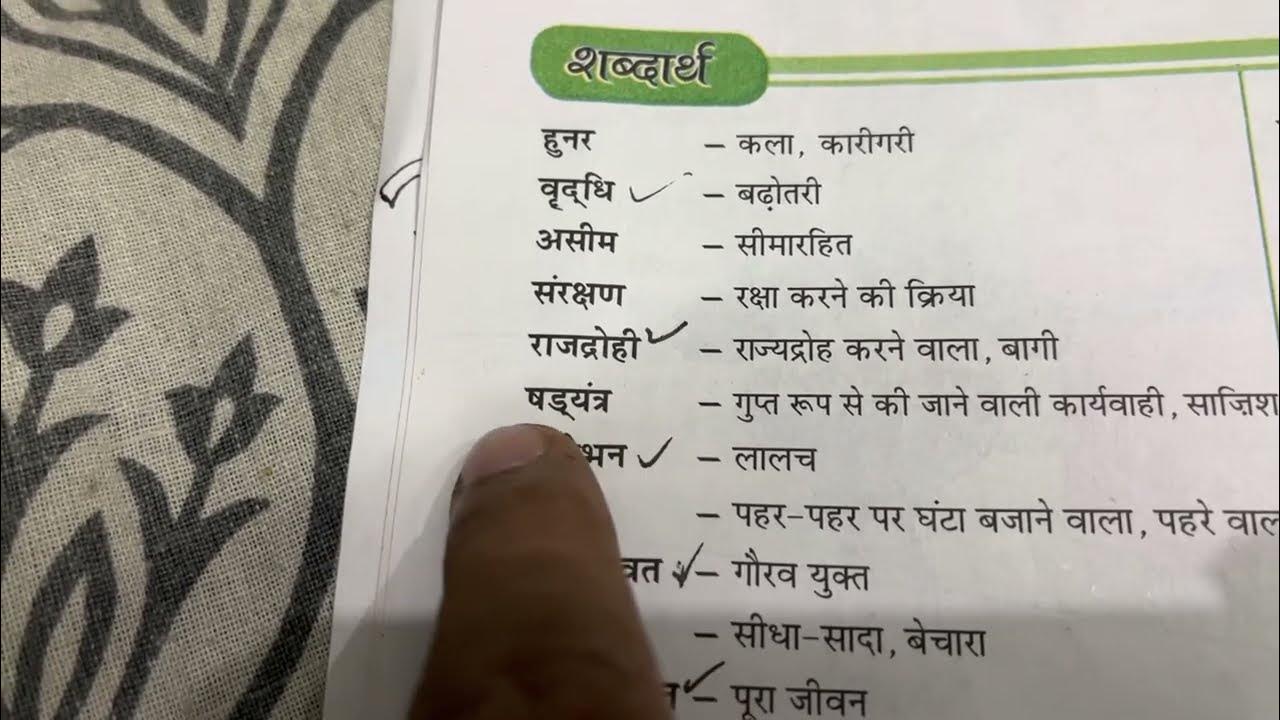 शब्दार्थ
हुनर – कला, कारीगरी
वृद्‌धि – बढ़ोतरी
असीम – सीमारहित
संरक्षण – रक्षा करने की क्रिया
राजद्रोही – राज्यद्रोह करने वाला, बागी
षड्‌यंत्र – गुप्त रूप से की जाने वाली कार्यवाही, साज़िश
– लालच
– पहर-पहर पर घंटा बजाने वाला, पहरे
– गौरव युक्त
– सीधा-सादा, बेचारा
– पूरा जीवन